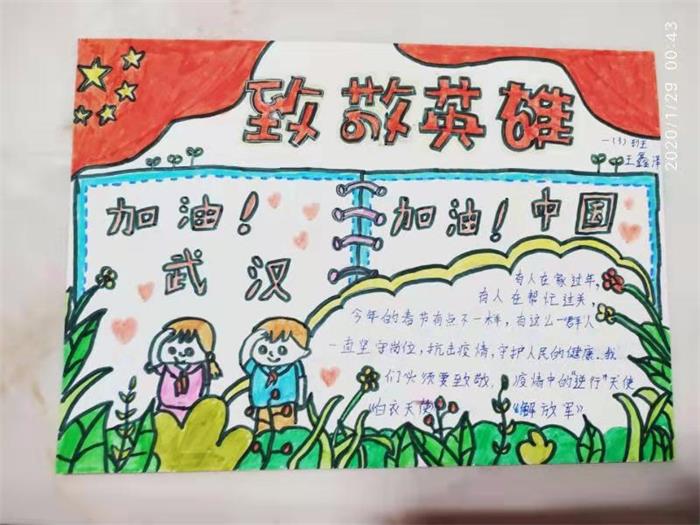 致敬英雄
一(3)班王
王鑫泽
加油!
武汉
加油!中国
有人在家过年,
有人在帮忙过关,
今年的春节有点不一样,有这么一群人
一直坚守岗位,抗击疫情,守护人民的健康.我
们必须要致敬,疫情中的"逆行"天使
"白衣天使" "解放军"
2020/1/29 00:43